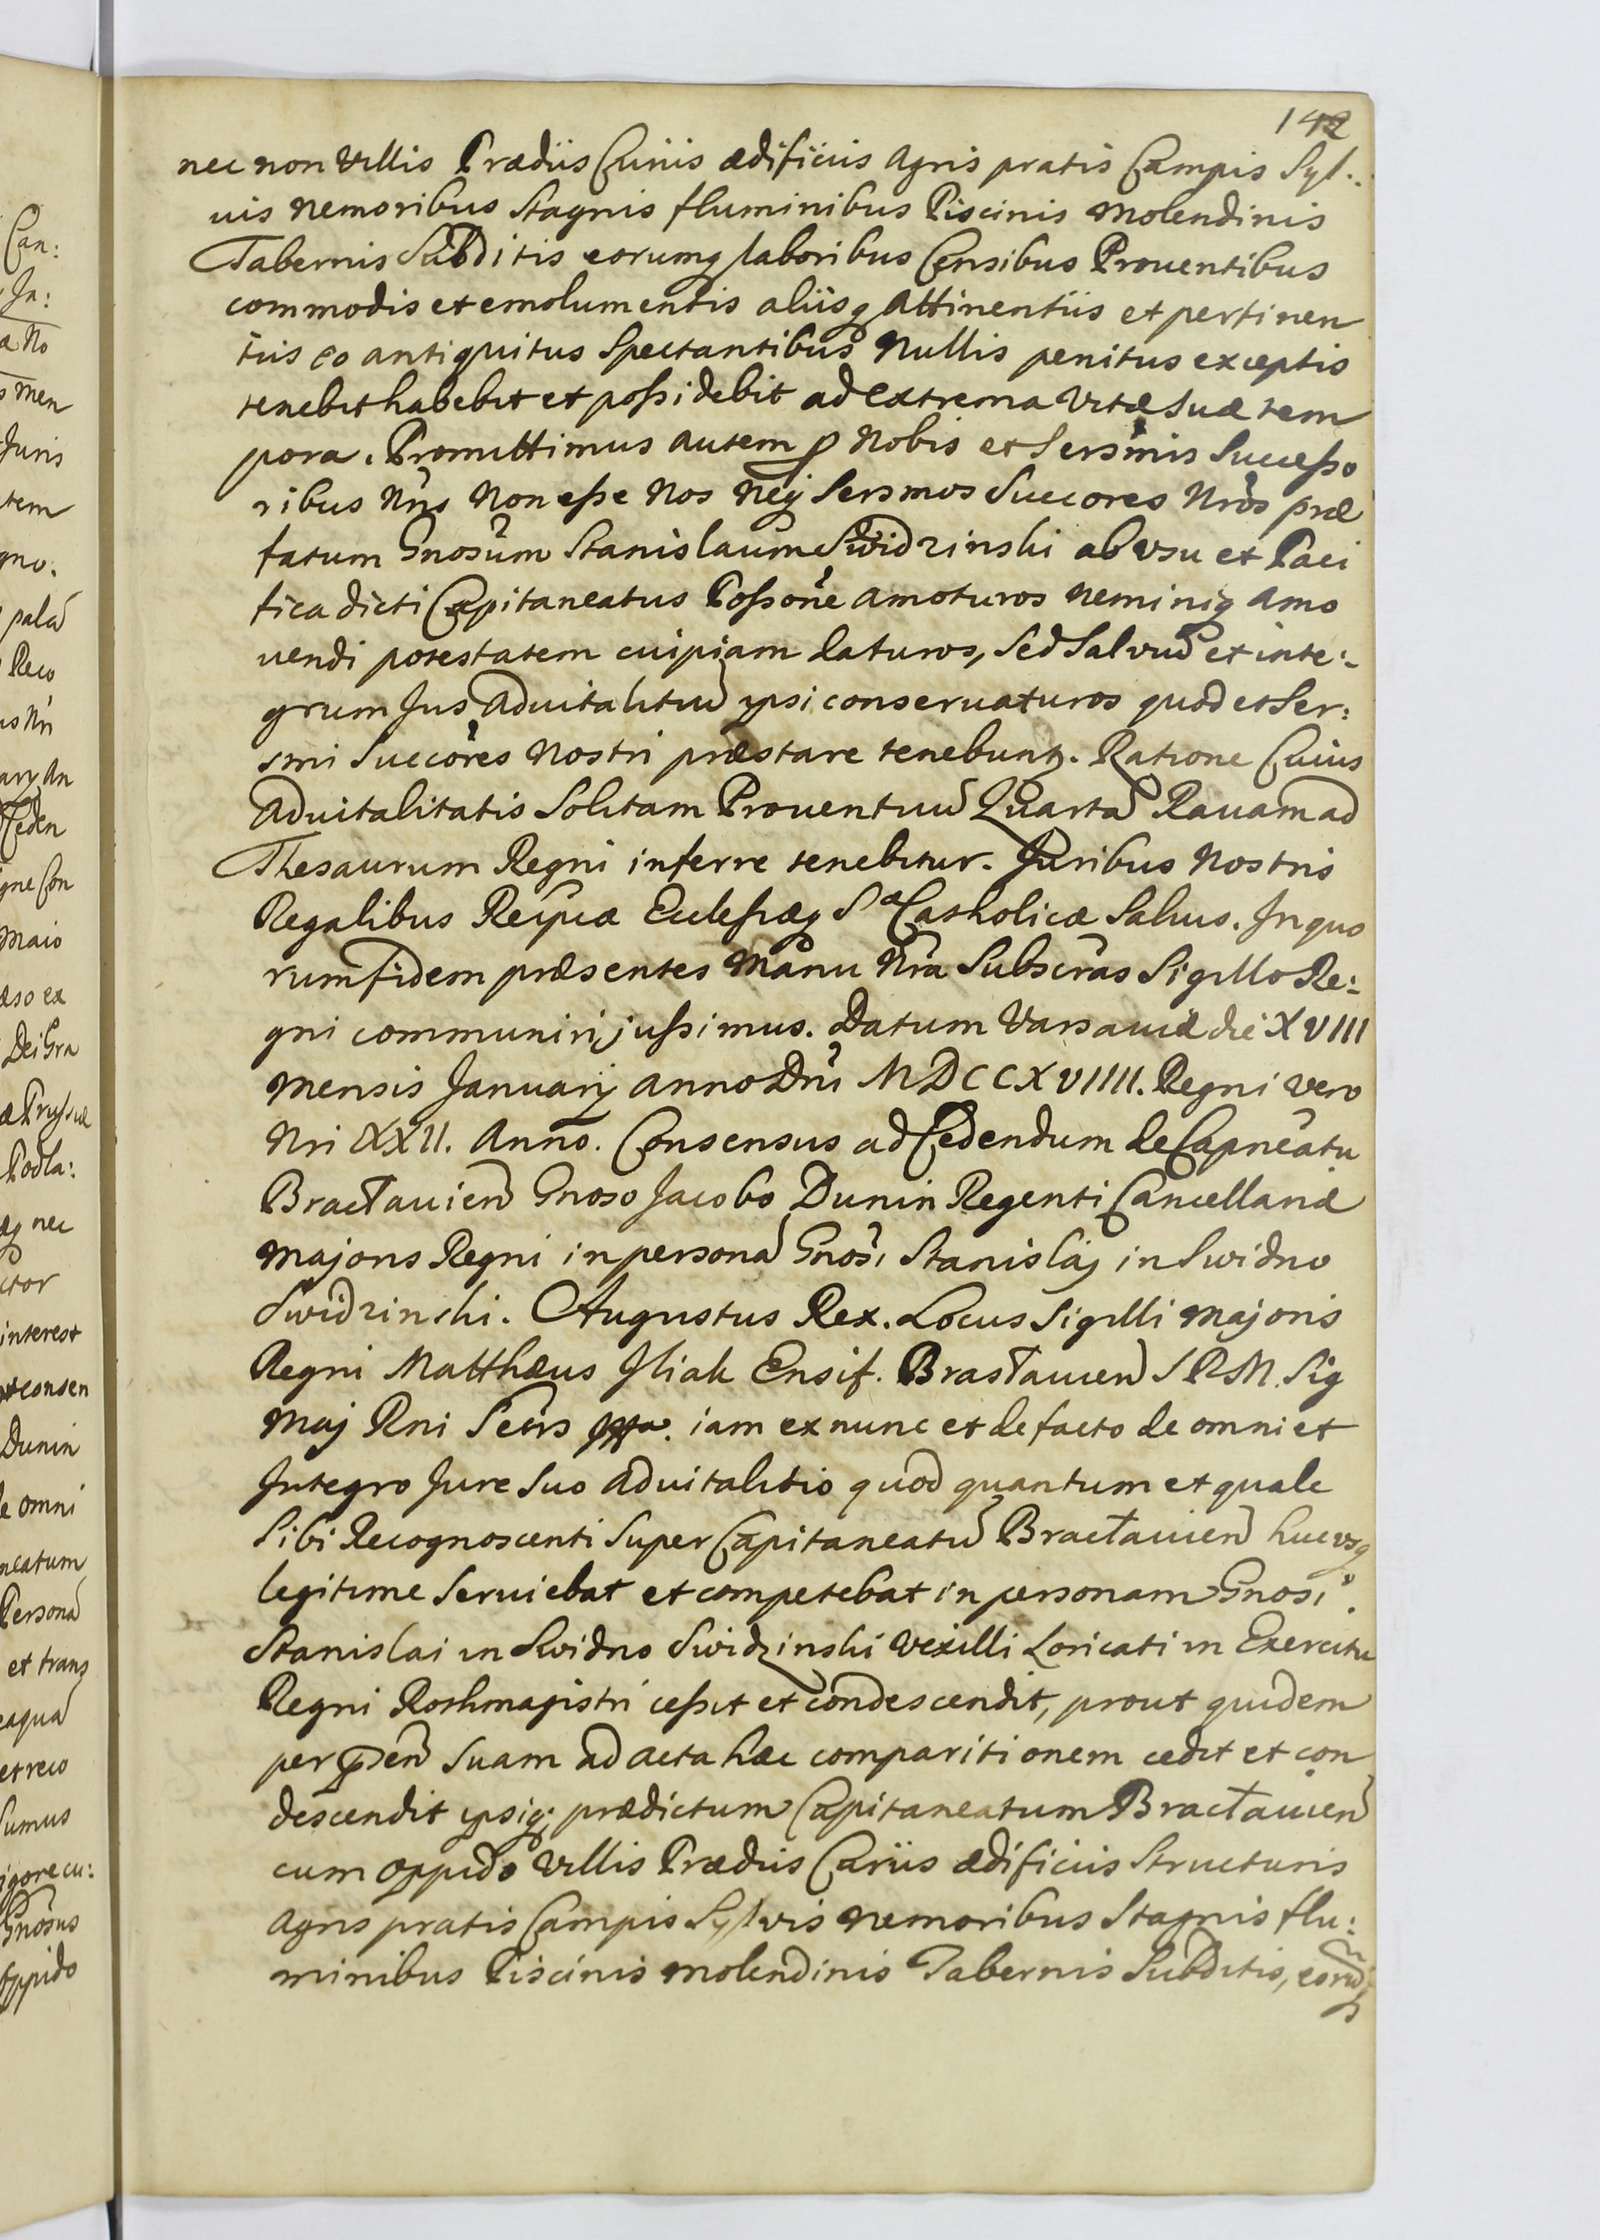 142
nec non Villis Prædiis Curiis ædificiis Agris pratis Campis Syl:
uis Nemoribus Stagnis fluminibus Piscinis Molendinis
Tabernis Subditis eorumq laboribus Censibus Prouentibus
commodis et emolumentis aliisq Attinentiis et pertinen
tiis eo antiquitus Spectantibus Nullis penitus exceptis
tenebit habebit et possidebit ad extrema Vitæ Suæ tem
pora. Promittimus autem p Nobis et Sersmis Successo
ribus Nris Non esse Nos Neq Sersmos Succores Nros præ
fatum Gnosum Stanislaum Swidzinski ab vsu et Paci
fica dicti Capitaneatus Possone Amoturos Neminiq Amo
uendi potestatem cuipiam daturos, Sed Salvu et inte:
grum Jus Aduitalitiu ipsi conseruaturos quod et Ser:
smi Succores Nostri præstare tenebuntr. Ratione Cuius
Aduitalitatis Solitam Prouentuu Quarta Rauam ad
Thesaurum Regni inferre tenebitur. Juribus Nostris
Regalibus Reipcæ Ecclesiæq Sæ Catholicæ Saluis. In quo
rum fidem præsentes Manu Nra Subscras Sigillo Re:
gni communiri jussimus. Datum Varsauiæ die XVIII
Mensis Januarij Anno Dni MDCCXVIIII. Regni vero
Nri XXII. Anno. Consensus ad Cedendum de Capneatu
Bractauien Gnoso Jacobo Dunin Regenti Cancellariæ
Majoris Regni in persona Gnosi Stanislaj in Swidno
Swidzinski. Augustus Rex. Locus Sigilli Majoris
Regni Matthæus Iliak Ensif. Brastauien S R M. Sig
Maj Rni Secrs iam ex nunc et de facto de omni et
Integro Jure Suo Aduitalitio quod quantum et quale
Sibi Recognoscenti Super Capitaneatu Bractauien hucvsq
legitime Seruiebat et competebat in personam Gnosi.
Stanislai in Swidno Swidzinski Vexilli Loricati in Exercitu
Regni Rothmagistri cessit et condescendit, prout quidem
per psen Suam ad acta hæc comparitionem cedit et con
descendit ipsiq; prædictum Capitaneatum Bractauien
cum oppido Villis Prædiis Curiis ædificiis Structuris
Agris pratis Campis Sylvis Nemoribus Stagnis flu:
minibus Piscinis Molendinis Tabernis Subditis, eoru